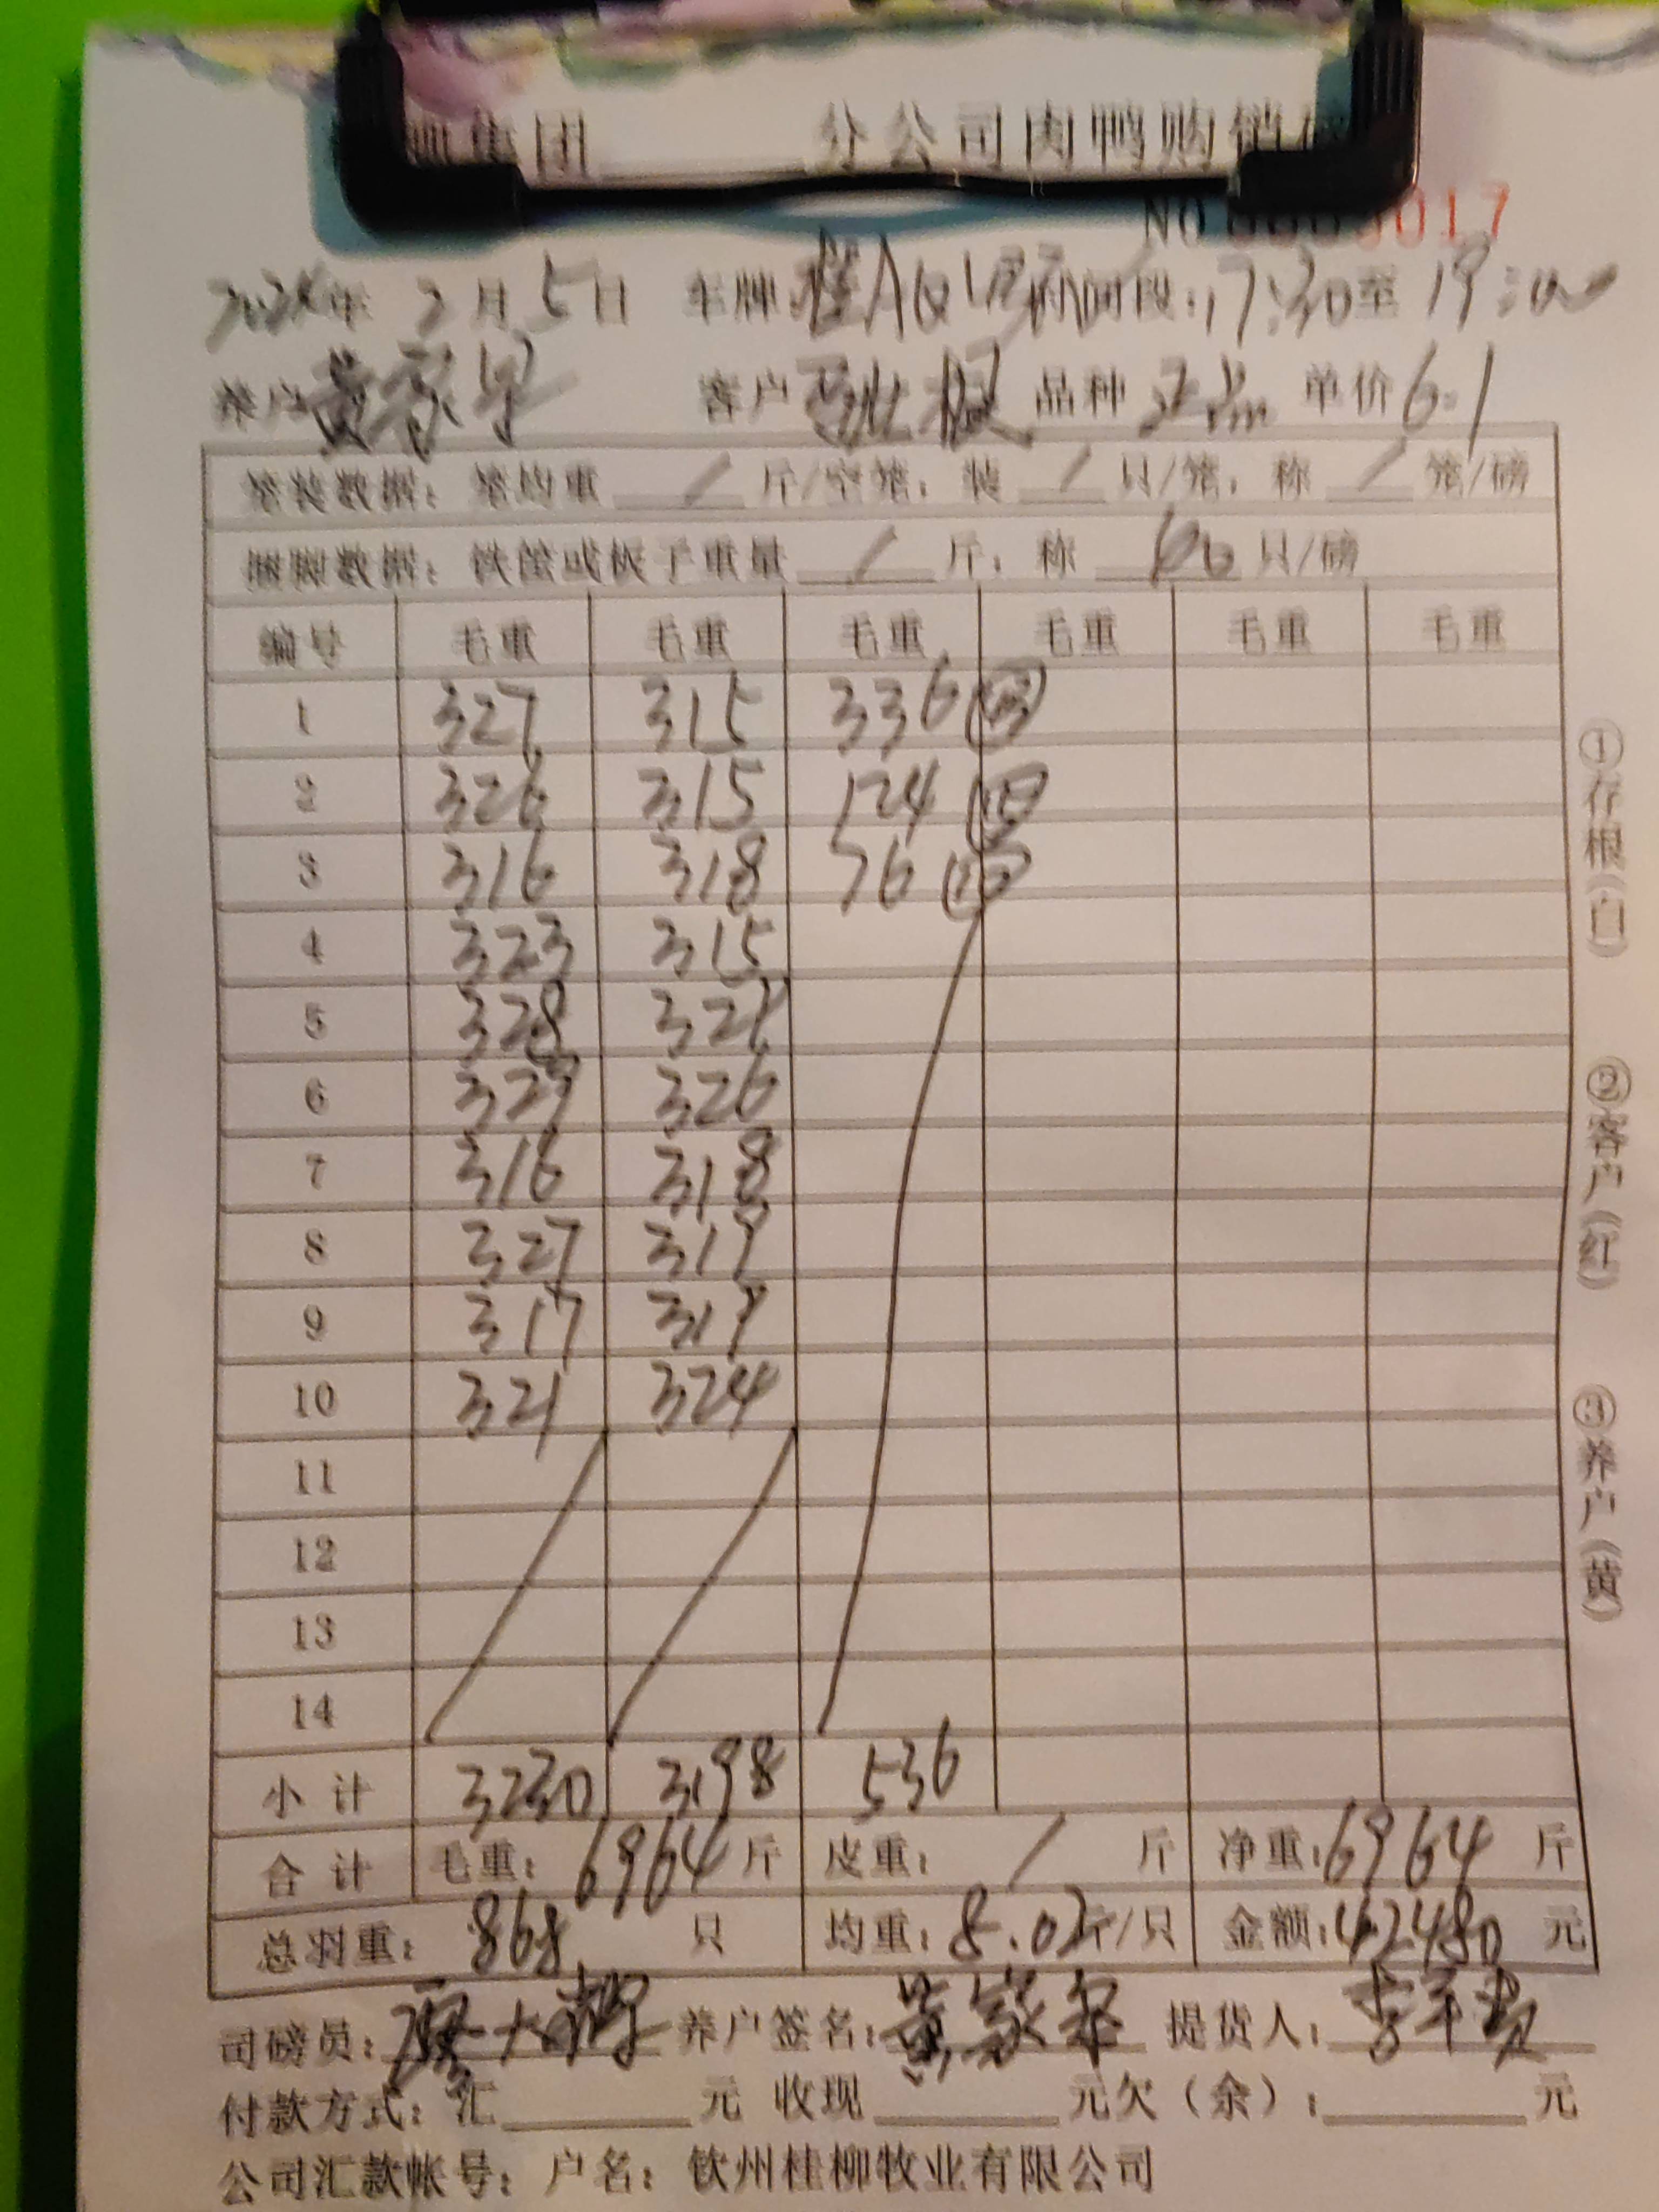 集团 分公司肉鸭购销
NO 017
2024年 2月5日 车牌:桂A 时间段:17:30至19:00
养户 黄家 客户 品种 单价6.1
笼装数据: 笼均重 / 斤/空笼, 装 / 只/笼, 称 / 笼/磅
捆脚数据: 铁筐或板子重量 / 斤, 称 60 只/磅
编号 毛重 毛重 毛重 毛重 毛重 毛重
1 327 315 336
2 326 315 124
3 316 318 76
4 323 315
5 328 329
6 329 326
7 316 318
8 327 319
9 317 319
10 321 324
11
12
13
14
小计 3230 3198 536
合计 毛重: 6964 斤 皮重: / 斤 净重:6964 斤
总羽重: 868 只 均重: 8.02斤/只 金额:42480 元
司磅员: 养户签名:黄家 提货人: 李
付款方式: 汇 元 收现 元欠(余): 元
公司汇款帐号: 户名: 钦州桂柳牧业有限公司
①存根(白) ②客户(红) ③养户(黄)